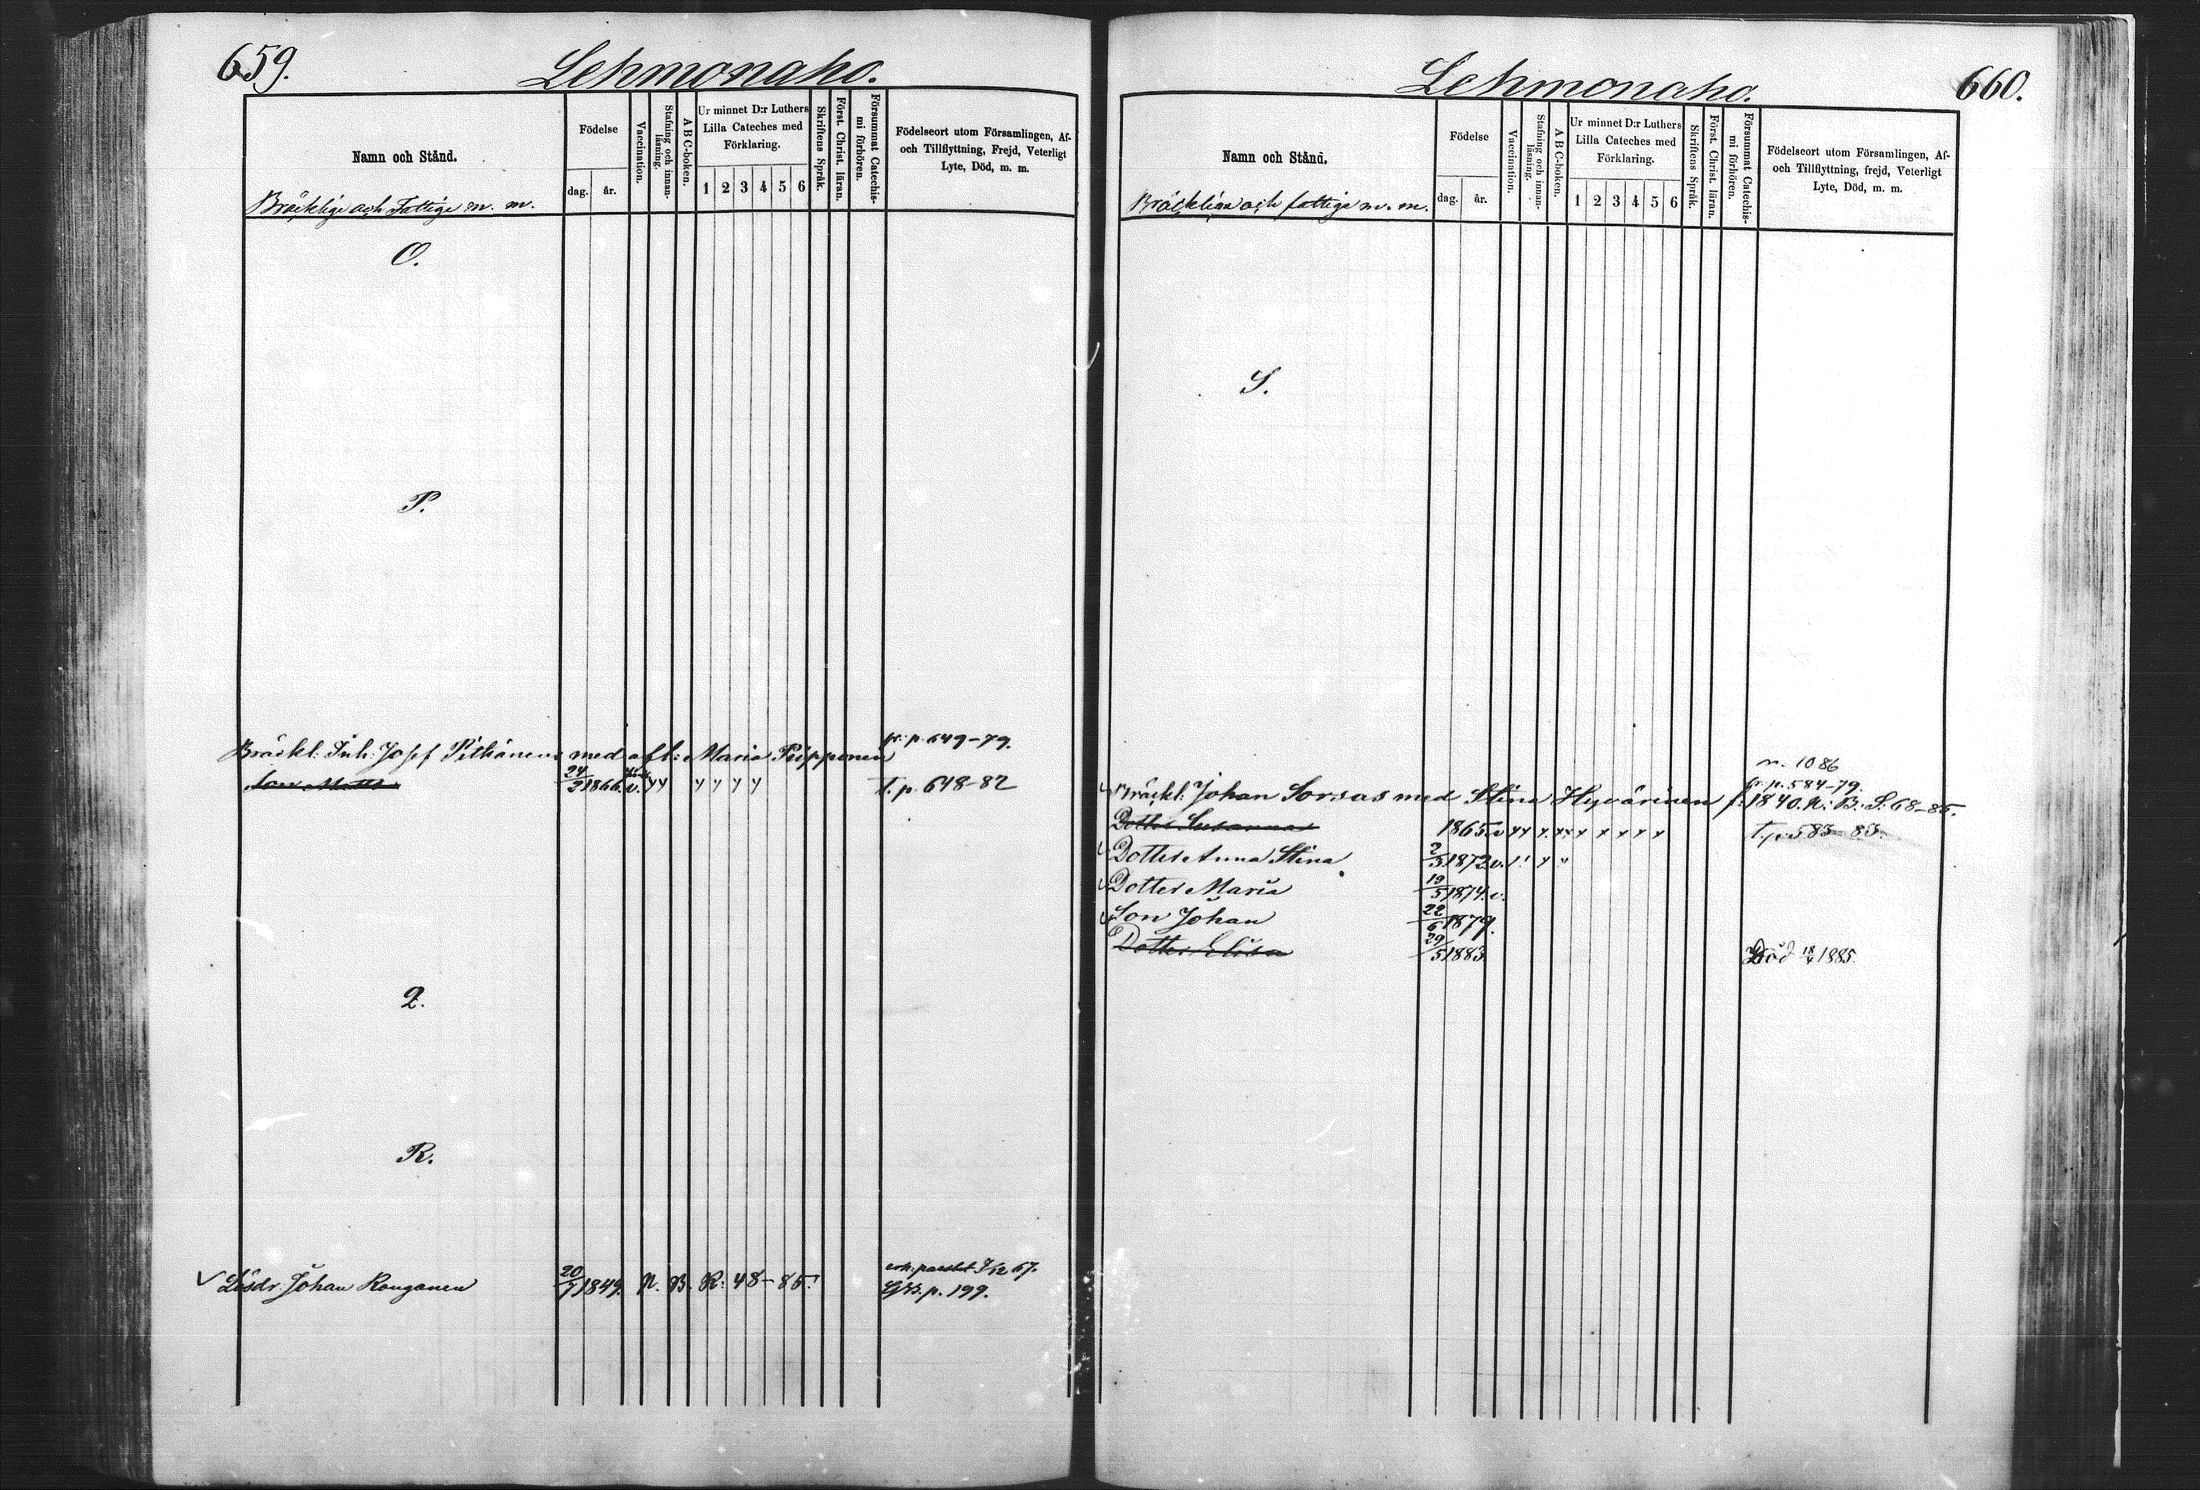 659.
Lehmonaho.
Namn och Stånd.
Födelse
dag.
år.
Vaccination.
Stafning och innan-
läsning.
A B C-boken.
Ur minnet D:r Luthers
Lilla Cateches med
Förklaring.
1 2 3 4 5 6
Skriftens Språk.
Först. Christ. läran.
Försummat Catechis-
mi förhören.
Födelseort utom Församlingen, Af-
och Tillflyttning, Frejd, Veterligt
Lyte, Död, m. m.
Bräcklige och Fattige m. m.
O.
P.
fr: p. 649-79.
Bräckl: Inh: Josef Pitkänen med afl: Maria Piipponen
Son Matts 24/2 1866. v. t. p. 648-82
Q.
R.
Lösdr. Johan Ronganen 20/7 1849. N. B. R: 48-85!
p. 199.
Lehmonaho.
660.
Namn och Stånd.
Födelse
dag.
år.
Vaccination.
Stafning och innan-
läsning.
A B C-boken.
Ur minnet D:r Luthers
Lilla Cateches med
Förklaring.
1 2 3 4 5 6
Skriftens Språk.
Först. Christ. läran.
Försummat Catechis-
mi förhören.
Födelseort utom Församlingen, Af-
och Tillflyttning, frejd, Veterligt
Lyte, Död, m. m.
Bräcklige och fattige m. m.
S.
n. 1086
fr. p. 584-79.
Bräckl: Johan Sorsas med Stina Hyvärinen f: 1840. N: B: S: 68-85.
Dotter Susanna 1865. v t. p. 583-83.
Dotter Anna Stina 2/5 1872 v.
Dotter Maria 19/5 1874. v.
Son Johan 22/6 1879.
Dotter Elisa 29/5 1883 Död 1885.